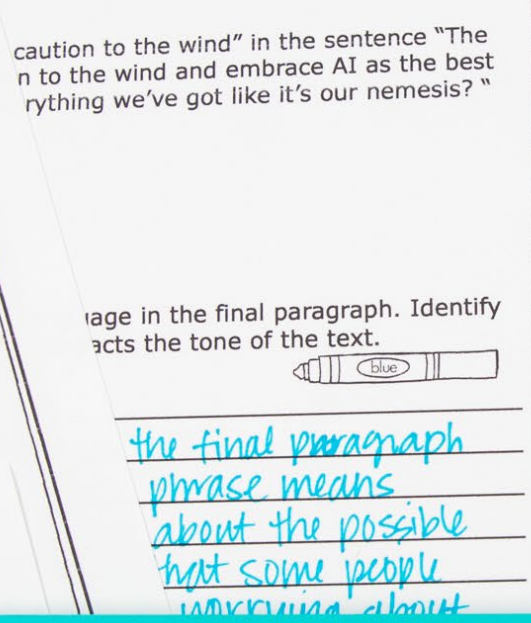 caution to the wind” in the sentence “The
n to the wind and embrace AI as the best
rything we’ve got like it’s our nemesis? “
uage in the final paragraph. Identify
acts the tone of the text.
blue
the final paragraph
phrase means
about the possible
that some people
worrying about